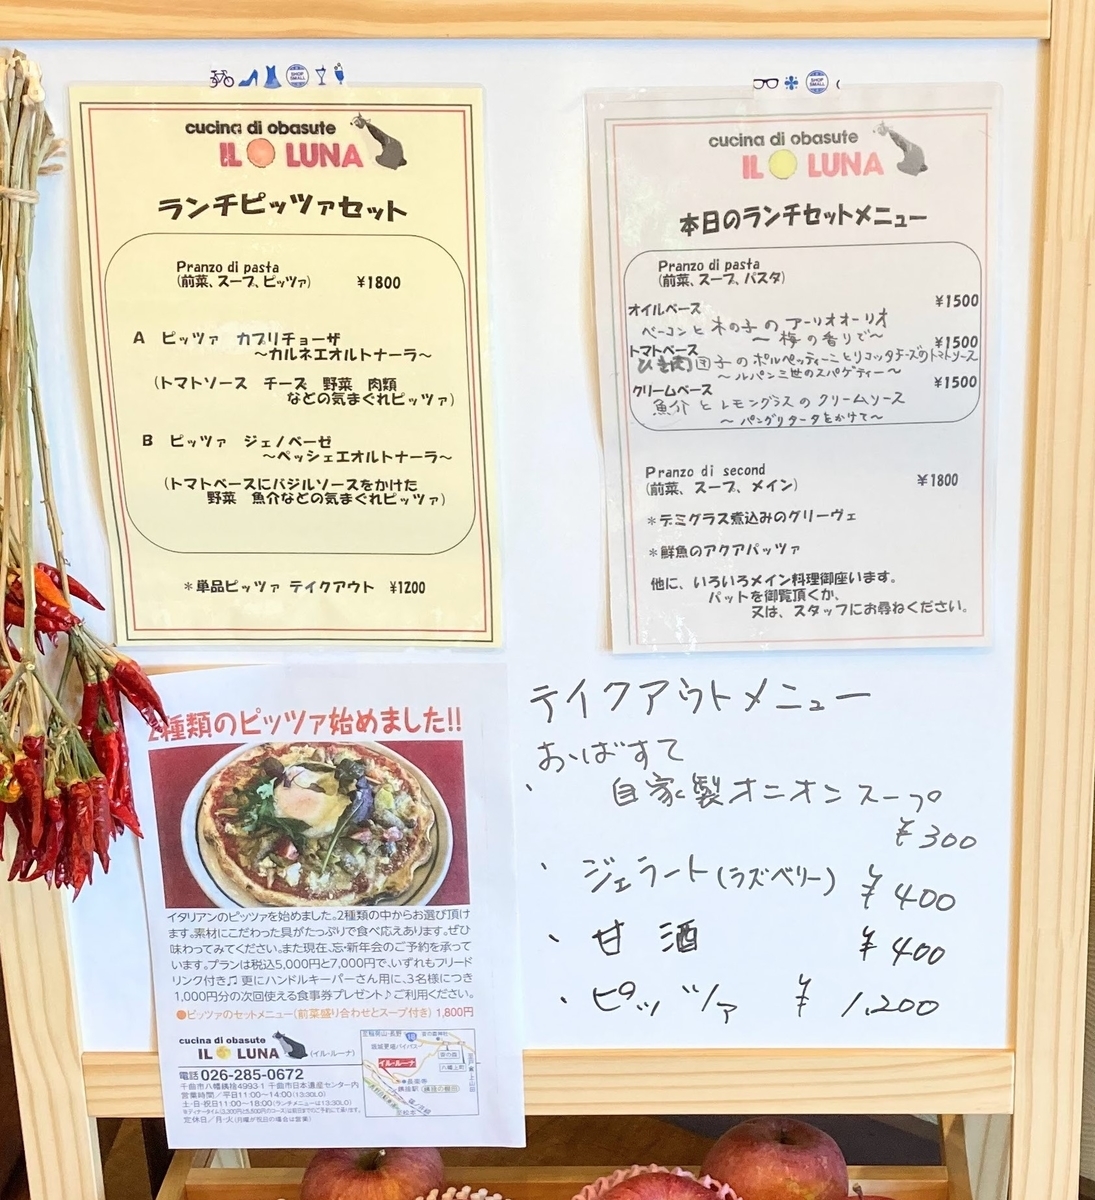 SHOP SMALL
cucina di obasute
IL LUNA
ランチピッツァセット
Pranzo di pasta
(前菜、スープ、ピッツァ) ¥1800
A ピッツァ カプリチョーザ
～カルネエオルトナーラ～
(トマトソース チーズ 野菜 肉類
などの気まぐれピッツァ)
B ピッツァ ジェノベーゼ
～ペッシェエオルトナーラ～
(トマトベースにバジルソースをかけた
野菜 魚介などの気まぐれピッツァ)
＊単品ピッツァ テイクアウト ¥1200
SHOP SMALL
cucina di obasute
IL LUNA
本日のランチセットメニュー
Pranzo di pasta
(前菜、スープ、パスタ)
オイルベース ¥1500
ベーコンと木の子のアーリオオーリオ
～梅の香りで～
トマトベース ¥1500
団子のポルペッティーニとリコッタチーズのトマトソース
～ルパン三世のスパゲティー～
クリームベース ¥1500
魚介とレモングラスのクリームソース
～パングリタータをかけて～
Pranzo di second
(前菜、スープ、メイン) ¥1800
＊デミグラス煮込みのグリーヴェ
＊鮮魚のアクアパッツァ
他に、いろいろメイン料理御座います。
パットを御覧頂くか、
又は、スタッフにお尋ねください。
2種類のピッツァ始めました!!
イタリアンのピッツァを始めました。2種類の中からお選び頂け
ます。素材にこだわった具がたっぷりで食べ応えあります。ぜひ
味わってみてください。また現在、忘・新年会のご予約を承って
います。プランは税込5,000円と7,000円で、いずれもフリード
リンク付き♫更にハンドルキーパーさん用に、3名様につき
1,000円分の次回使える食事券プレゼント♪ご利用ください。
●ピッツァのセットメニュー(前菜盛り合わせとスープ付き) 1,800円
cucina di obasute
IL LUNA (イル・ルーナ)
電話 026-285-0672
千曲市八幡姨捨4993-1 千曲市日本遺産センター内
営業時間／平日11:00～14:00(13:30LO)
土・日・祝日11:00～18:00(ランチメニューは13:30LO)
※ディナータイム(3,300円と5,500円のコース)は前日までのご予約にて承ります。
定休日／月・火(月曜が祝日の場合は営業)
イル・ルーナ
テイクアウトメニュー
おばすて
・ 自家製オニオンスープ
¥300
・ ジェラート(ラズベリー) ¥400
・ 甘酒 ¥400
・ ピッツァ ¥1,200